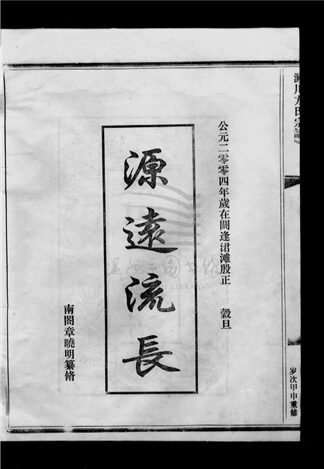 公元二零零四年歲在閼逢涒灘殷正 穀旦
源遠流長
南閣章曉明纂脩
歲次甲申重修